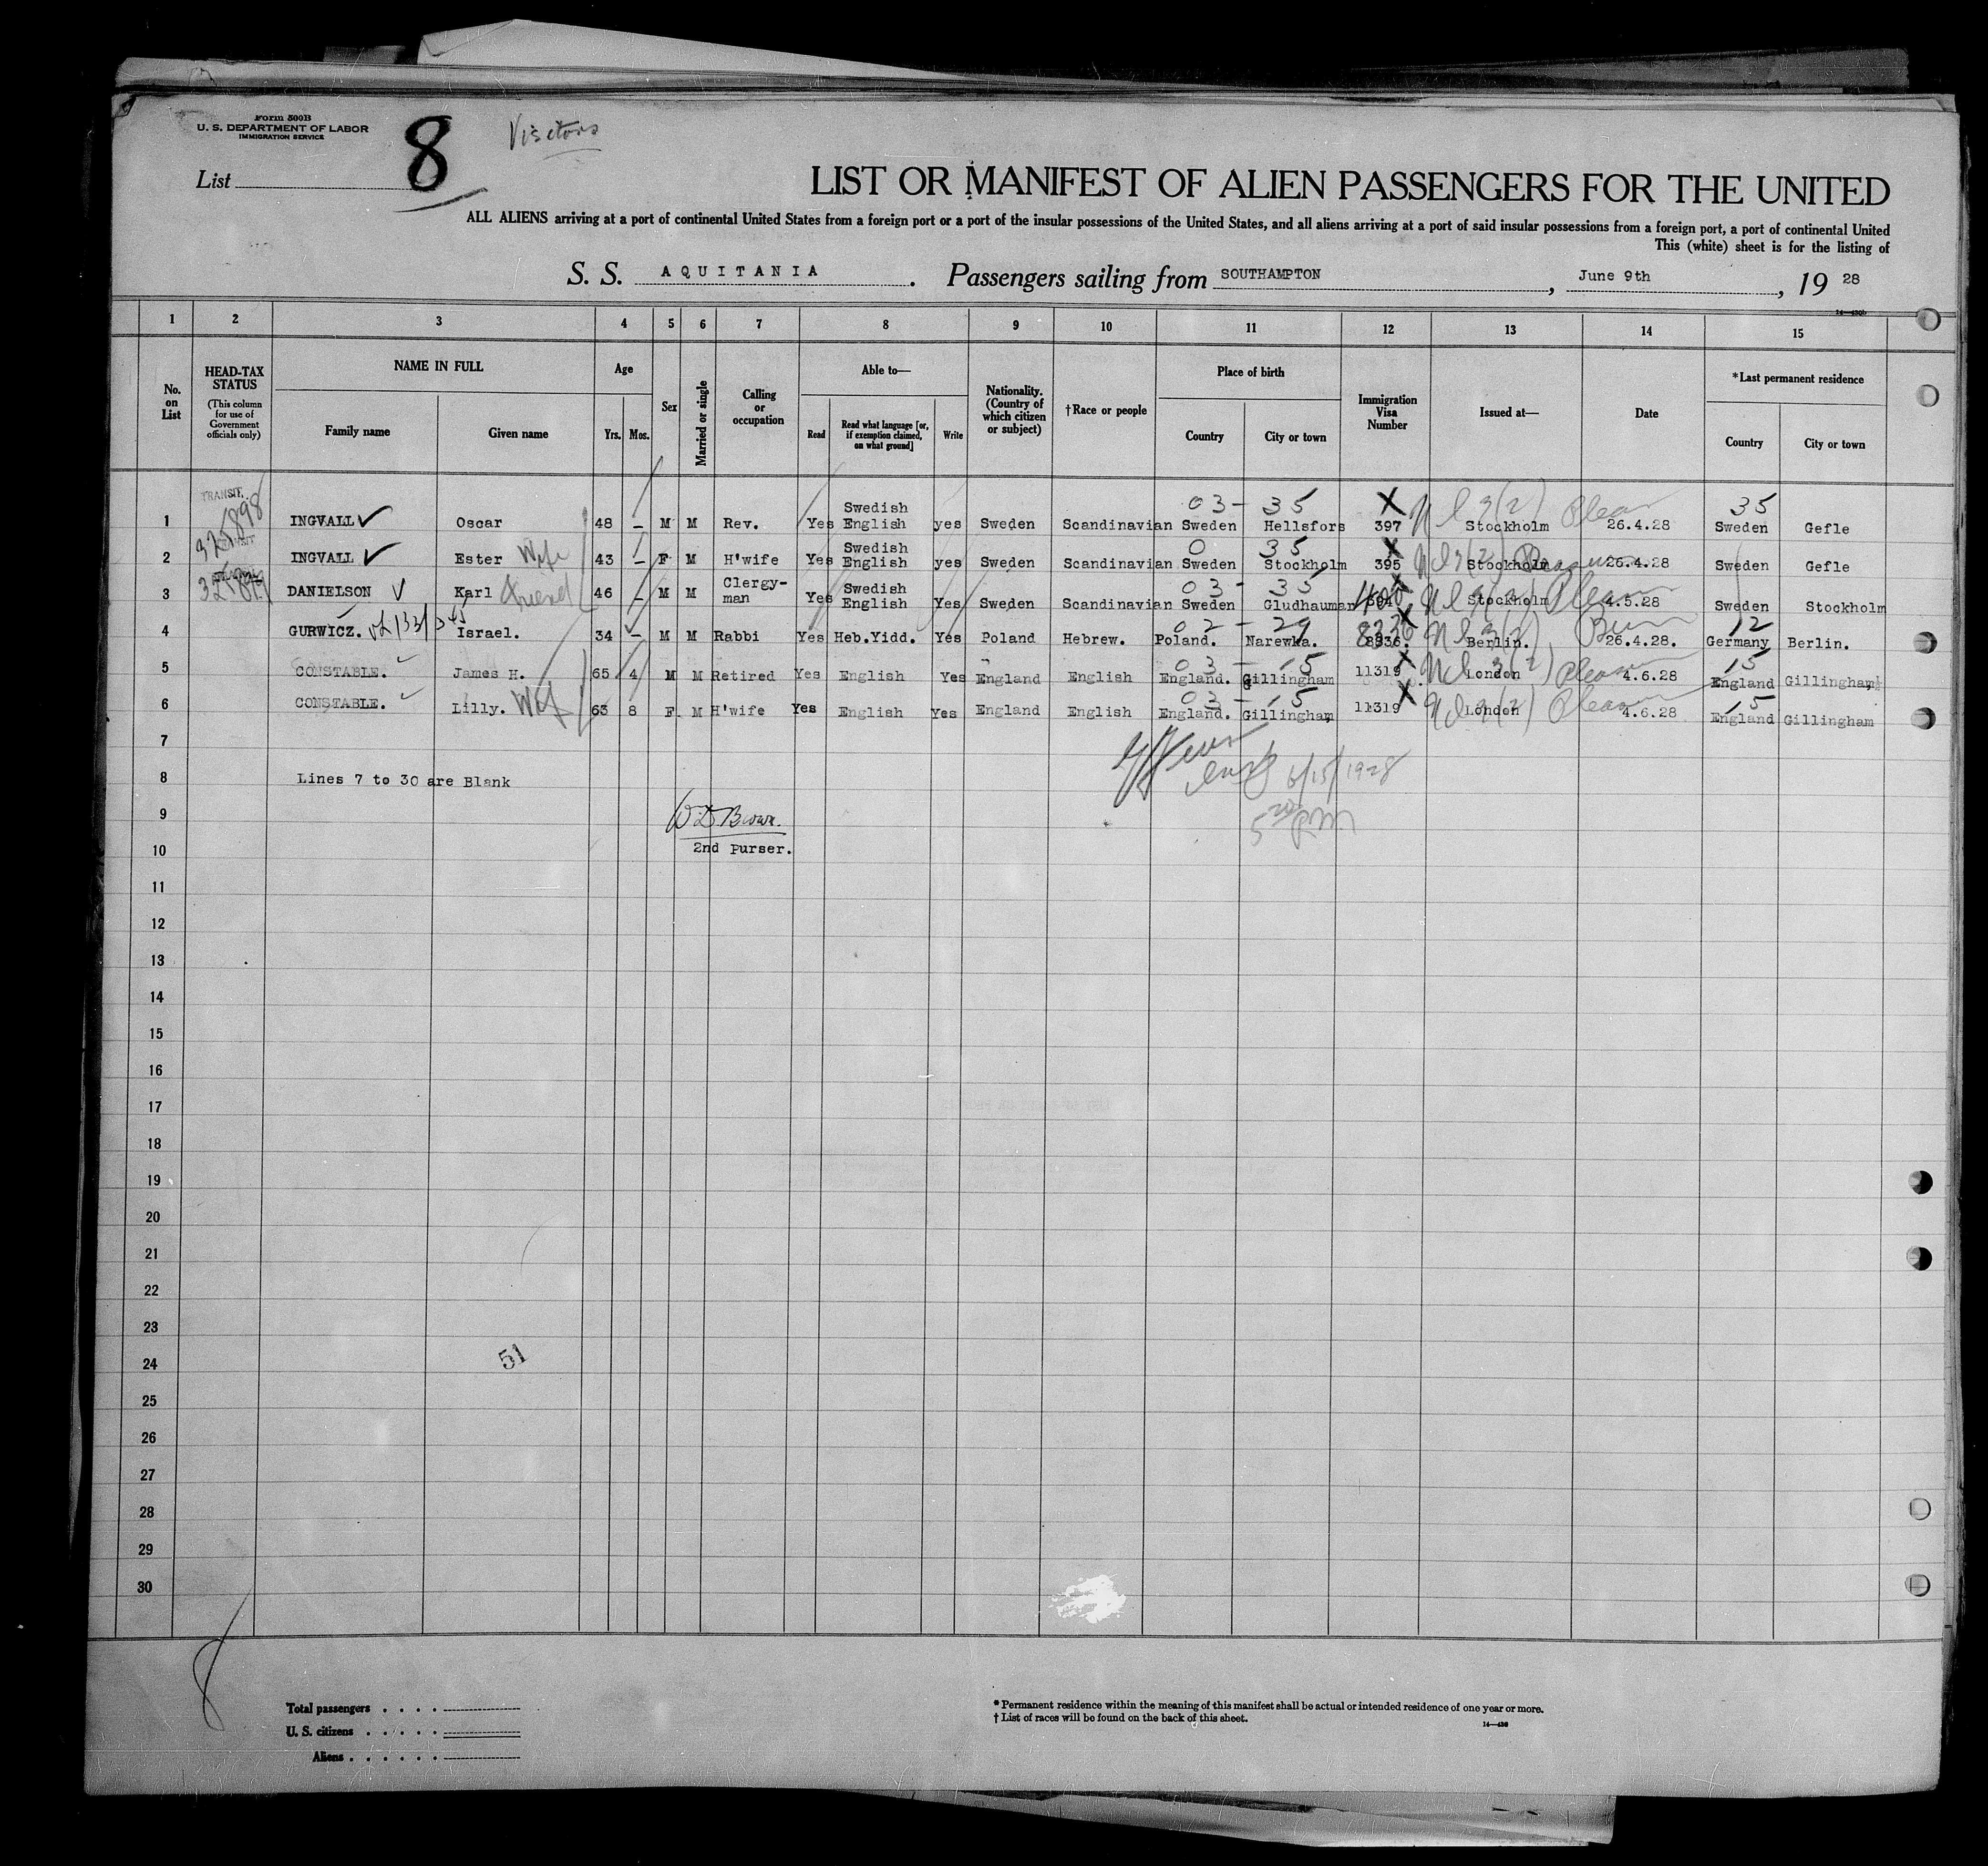 Form 500B
U. S. DEPARTMENT OF LABOR
IMMIGRATION SERVICE
8
Visitors
List
LIST OR MANIFEST OF ALIEN PASSENGERS FOR THE UNITED
ALL ALIENS arriving at a port of continental United States from a foreign port or a port of the insular possessions of the United States, and all aliens arriving at a port of said insular possessions from a foreign port, a port of continental United
This (white) sheet is for the listing of
S. S. AQUITANIA. Passengers sailing from SOUTHAMPTON, June 9th, 19 28
1 2 3 4 5 6 7 8 9 10 11 12 13 14 15
No. on List
HEAD-TAX STATUS
(This column for use of Government officials only)
NAME IN FULL
Family name Given name
Age
Yrs. Mos.
Sex
Married or single
Calling or occupation
Able to—
Read
Read what language [or, if exemption claimed, on what ground]
Write
Nationality. (Country of which citizen or subject)
†Race or people
Place of birth
Country City or town
Immigration Visa Number
Issued at—
Date
*Last permanent residence
Country City or town
TRANSIT. 03 - 35 X 35
1 325898 INGVALL Oscar 48 – M M Rev. Yes Swedish English yes Sweden Scandinavian Sweden Hellsfors 397 Stockholm 26.4.28 Sweden Gefle
0 35 X
2 INGVALL Ester Wife 43 – F M H'wife Yes Swedish English yes Sweden Scandinavian Sweden Stockholm 395 Stockholm 26.4.28 Sweden Gefle
03 - 35
3 DANIELSON Karl friend 46 – M M Clergy-man Yes Swedish English Yes Sweden Scandinavian Sweden Gludhauman Stockholm 4.5.28 Sweden Stockholm
02 - 29 X 12
4 GURWICZ. Israel. 34 – M M Rabbi Yes Heb.Yidd. Yes Poland Hebrew. Poland. Narewka. 8336. Berlin. 26.4.28. Germany Berlin.
03 - 15 X 15
5 CONSTABLE. James H. 65 4 M M Retired Yes English Yes England English England. Gillingham 11319 London 4.6.28 England Gillingham
03 - 15 X 15
6 CONSTABLE. Lilly. Wife 63 8 F M H'wife Yes English Yes England English England. Gillingham 11319 London 4.6.28 England Gillingham
7
8 Lines 7 to 30 are Blank
6/15/1928
9 W D Brown.
5 PM
10 2nd Purser.
11
12
13
14
15
16
17
18
19
20
21
22
23
24
51
25
26
27
28
29
30
8
Total passengers . . . .
U. S. citizens . . . . .
Aliens . . . . . .
* Permanent residence within the meaning of this manifest shall be actual or intended residence of one year or more.
† List of races will be found on the back of this sheet.